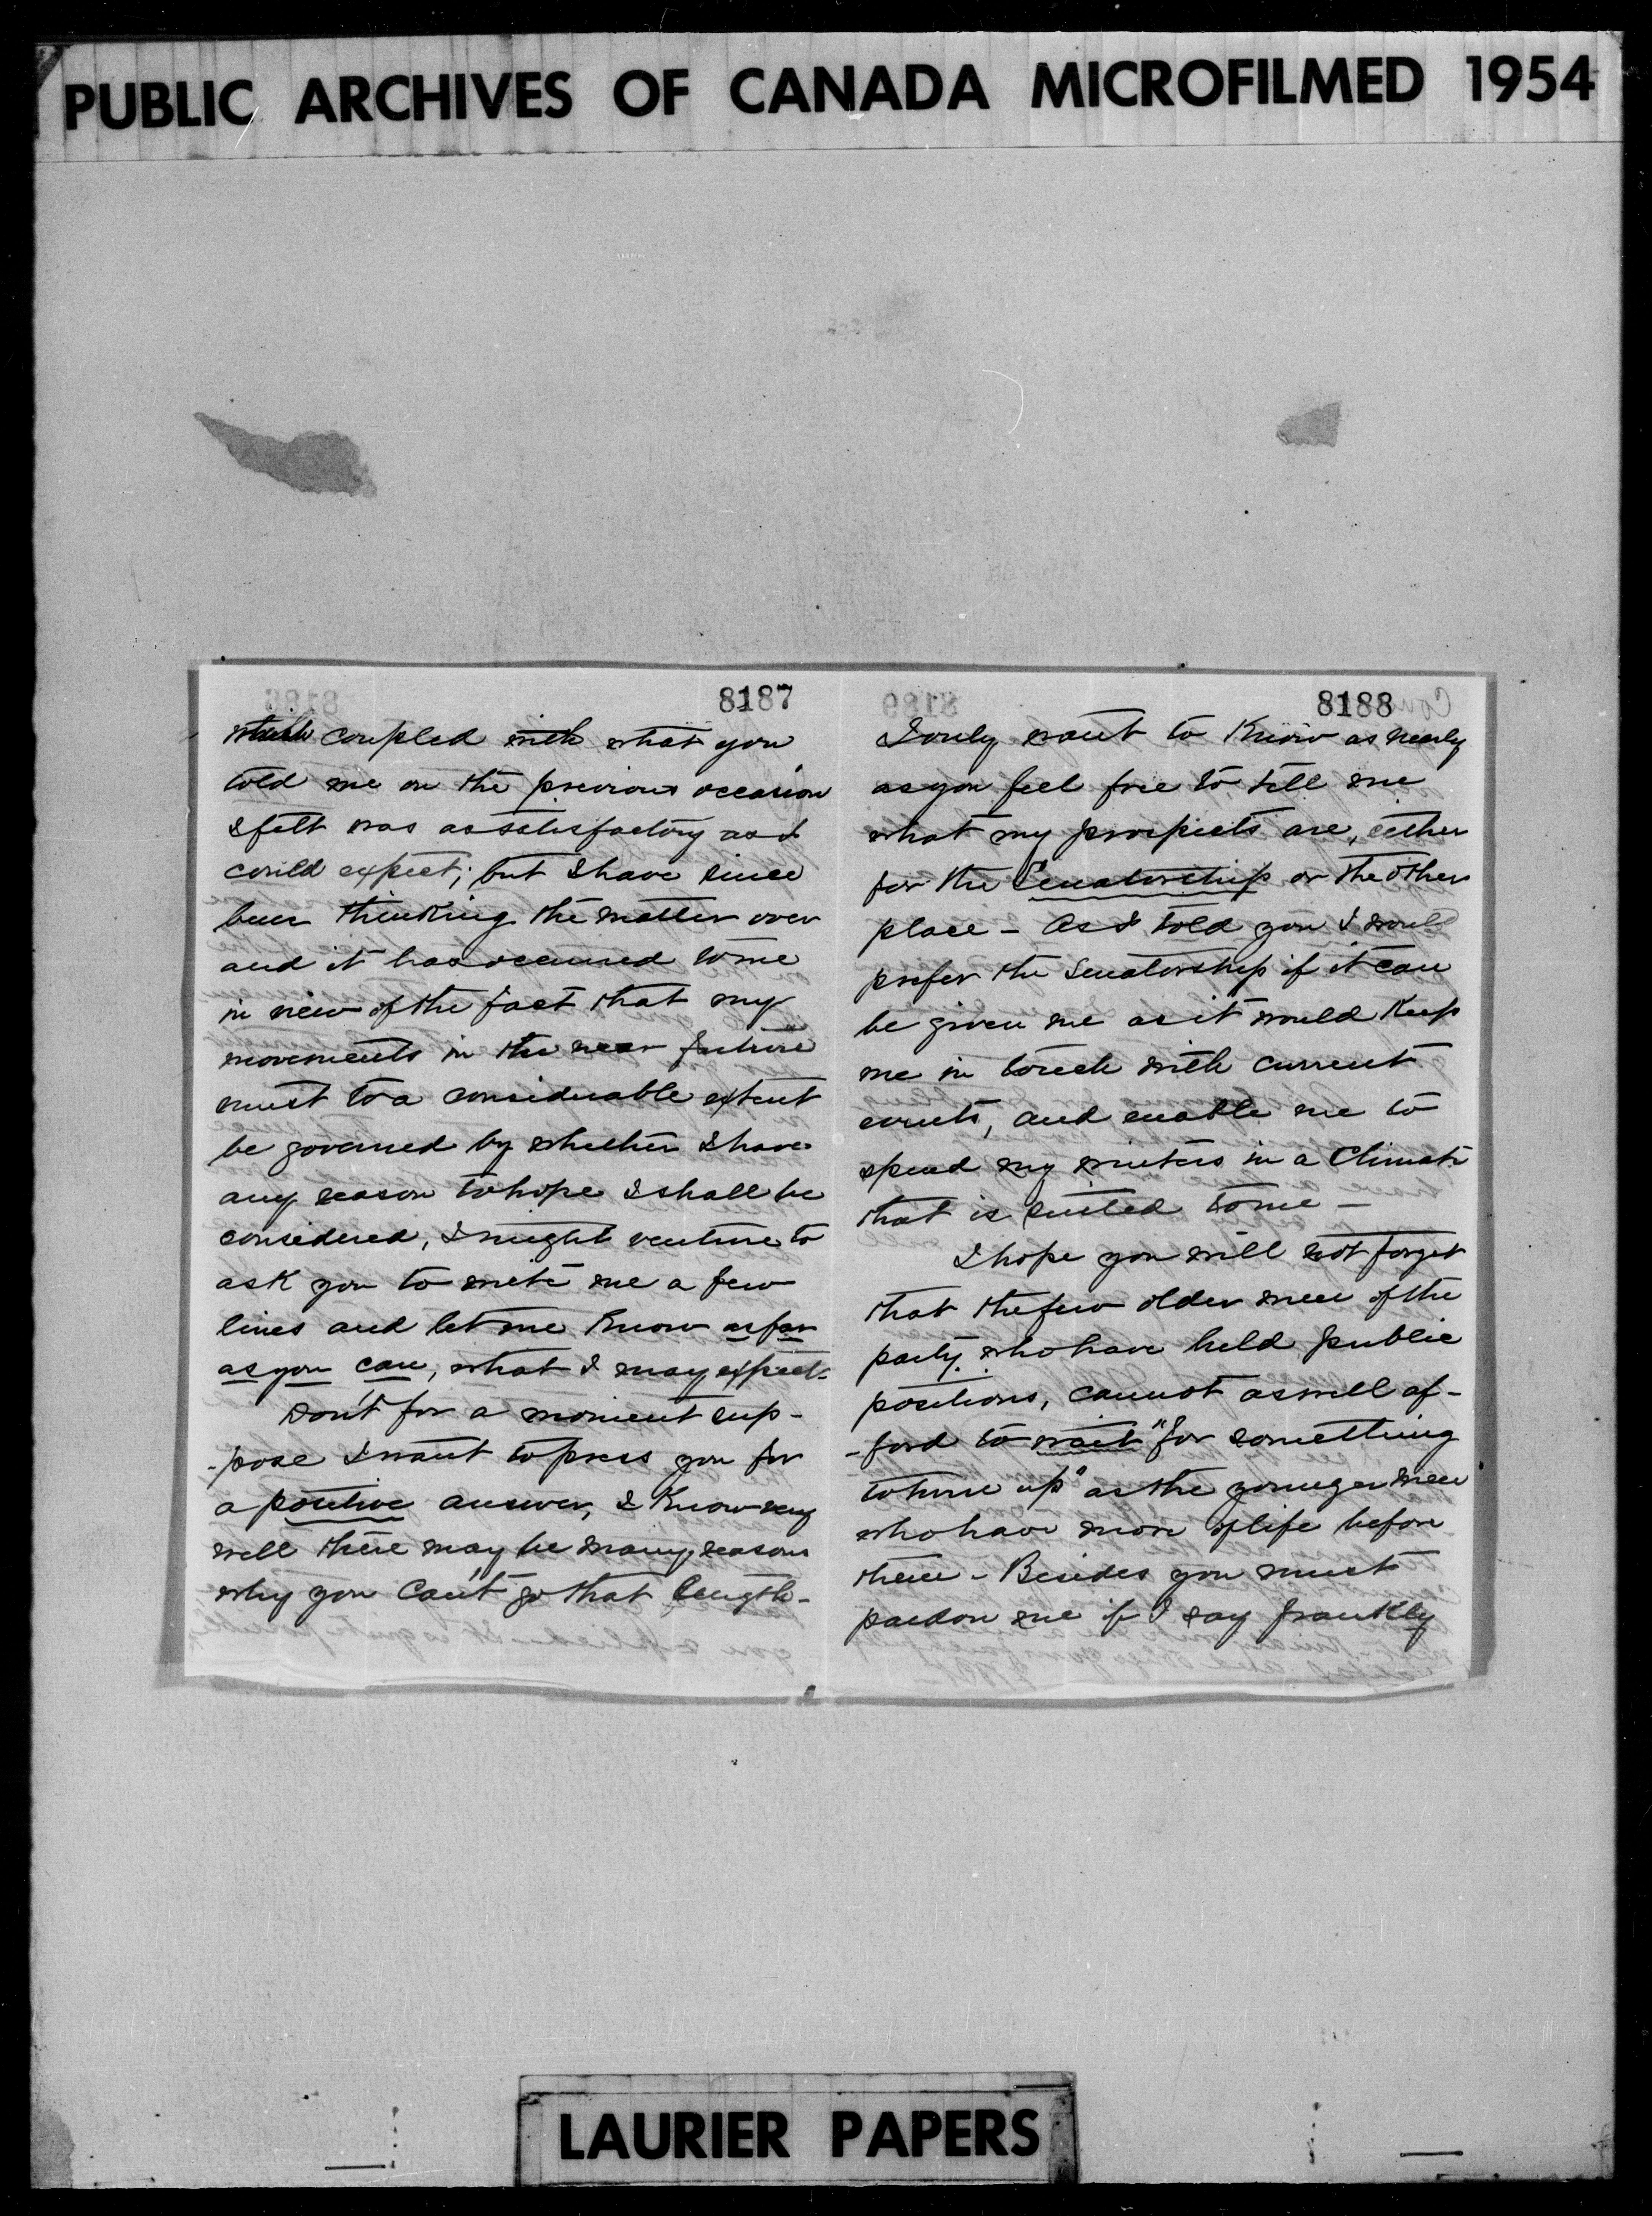 PUBLIC ARCHIVES OF CANADA MICROFILMED 1954
8187
which coupled with what you
told me on the previous occasion
I felt was as satisfactory as I
could expect; but I have since
been thinking the matter over
and it has occurred to me
in view of the fact that my
movements in the near future
must to a considerable extent
be governed by whether I have
any reason to hope I shall be
considered, I might venture to
ask you to write me a few
lines and let me know as far
as you can, what I may expect-
Don't for a moment sup-
-pose I want to press you for
a positive answer, I know very
well there may be many reasons
why you can't go that length-
8188
I only want to know as nearly
as you feel free to tell me
what my prospects are, either
for the Senatorship or the other
place - As I told you I would
prefer the Senatorship if it can
be given me as it would keep
me in touch with current
events, and enable me to
spend my winters in a Climate
that is suited to me -
I hope you will not forget
that the few older men of the
party who have held public
positions, cannot as well af-
-ford to wait "for something
to turn up" as the younger men
who have more of life before
them - Besides you must
pardon me if I say frankly
LAURIER PAPERS